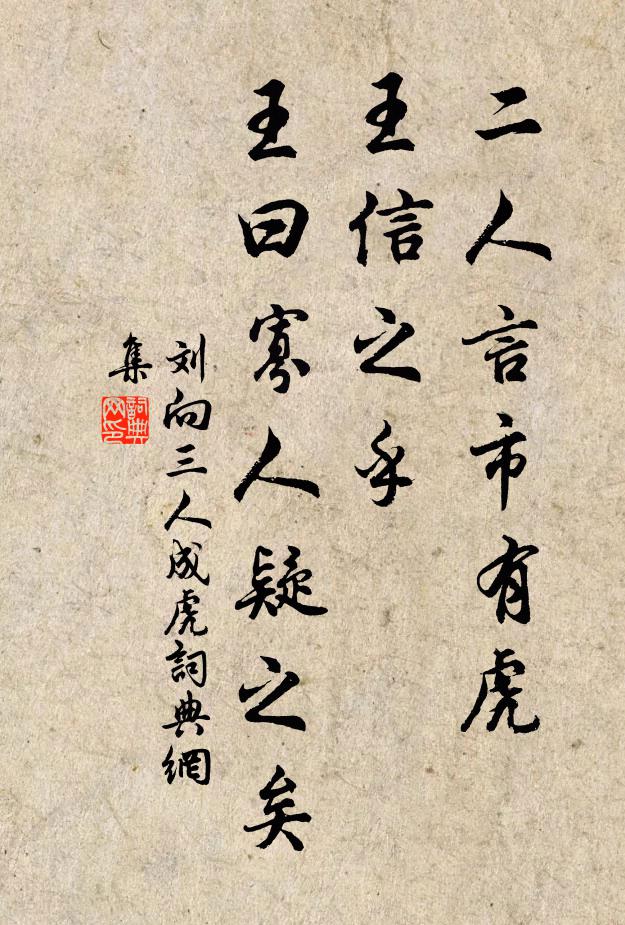 二人言市有虎
王信之乎
王曰寡人疑之矣
刘向三人成虎詞典網
集
詞典
网印